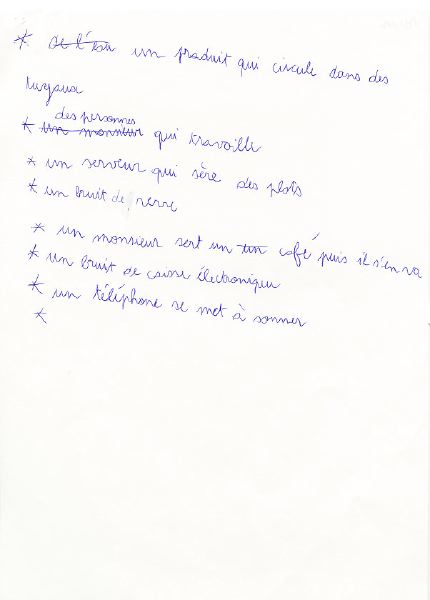 * de l'eau un produit qui circule dans des
tuyaux
des personnes
* un monsieur qui travaille
* un serveur qui sère des plats
* un bruit de verre
* un monsieur sert un un café puis il s'en va
* un bruit de caisse électronique
* un téléphone se met à sonner
*